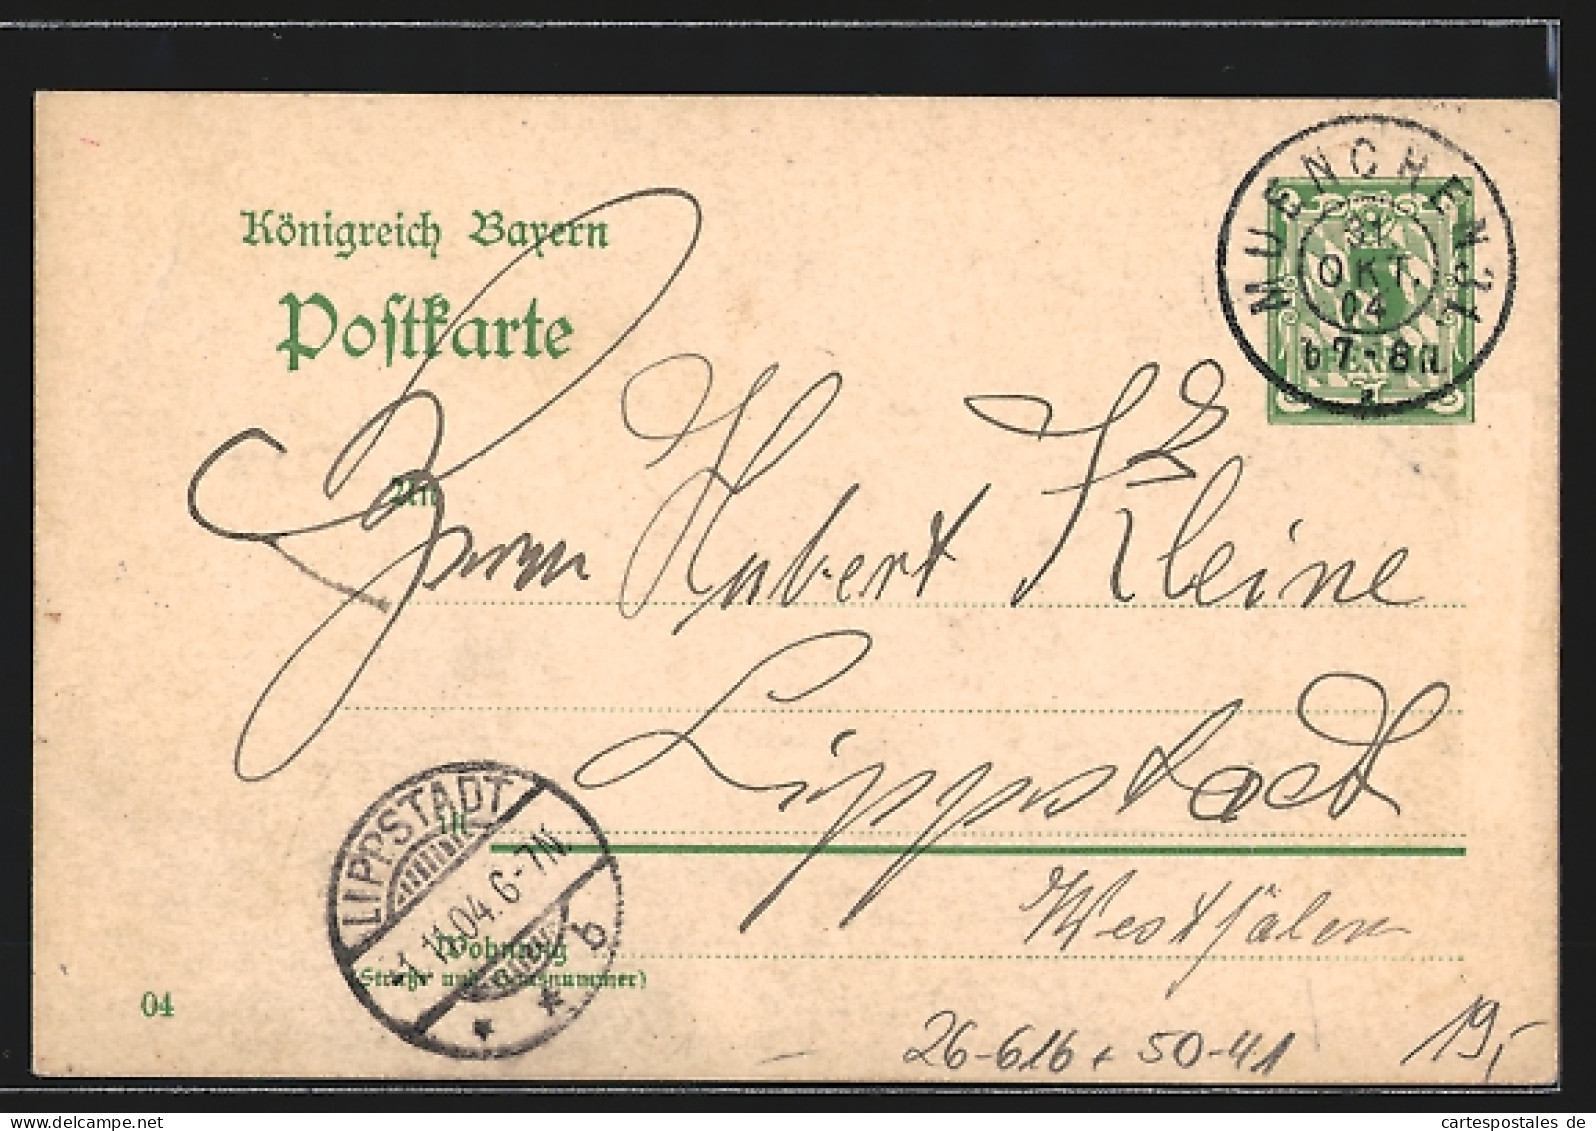 Königreich Bayern
Postkarte
MUENCHEN 31.
31
OKT.
04
7-8 N.
An
Herrn Hubert Kleine
Lippstadt
in
Westfalen
LIPPSTADT
1.11.04. 6-7N.
b
* *
Wohnung
(Straße und Hausnummer)
04
26-616 + 50-41
19,-
cartespostales de